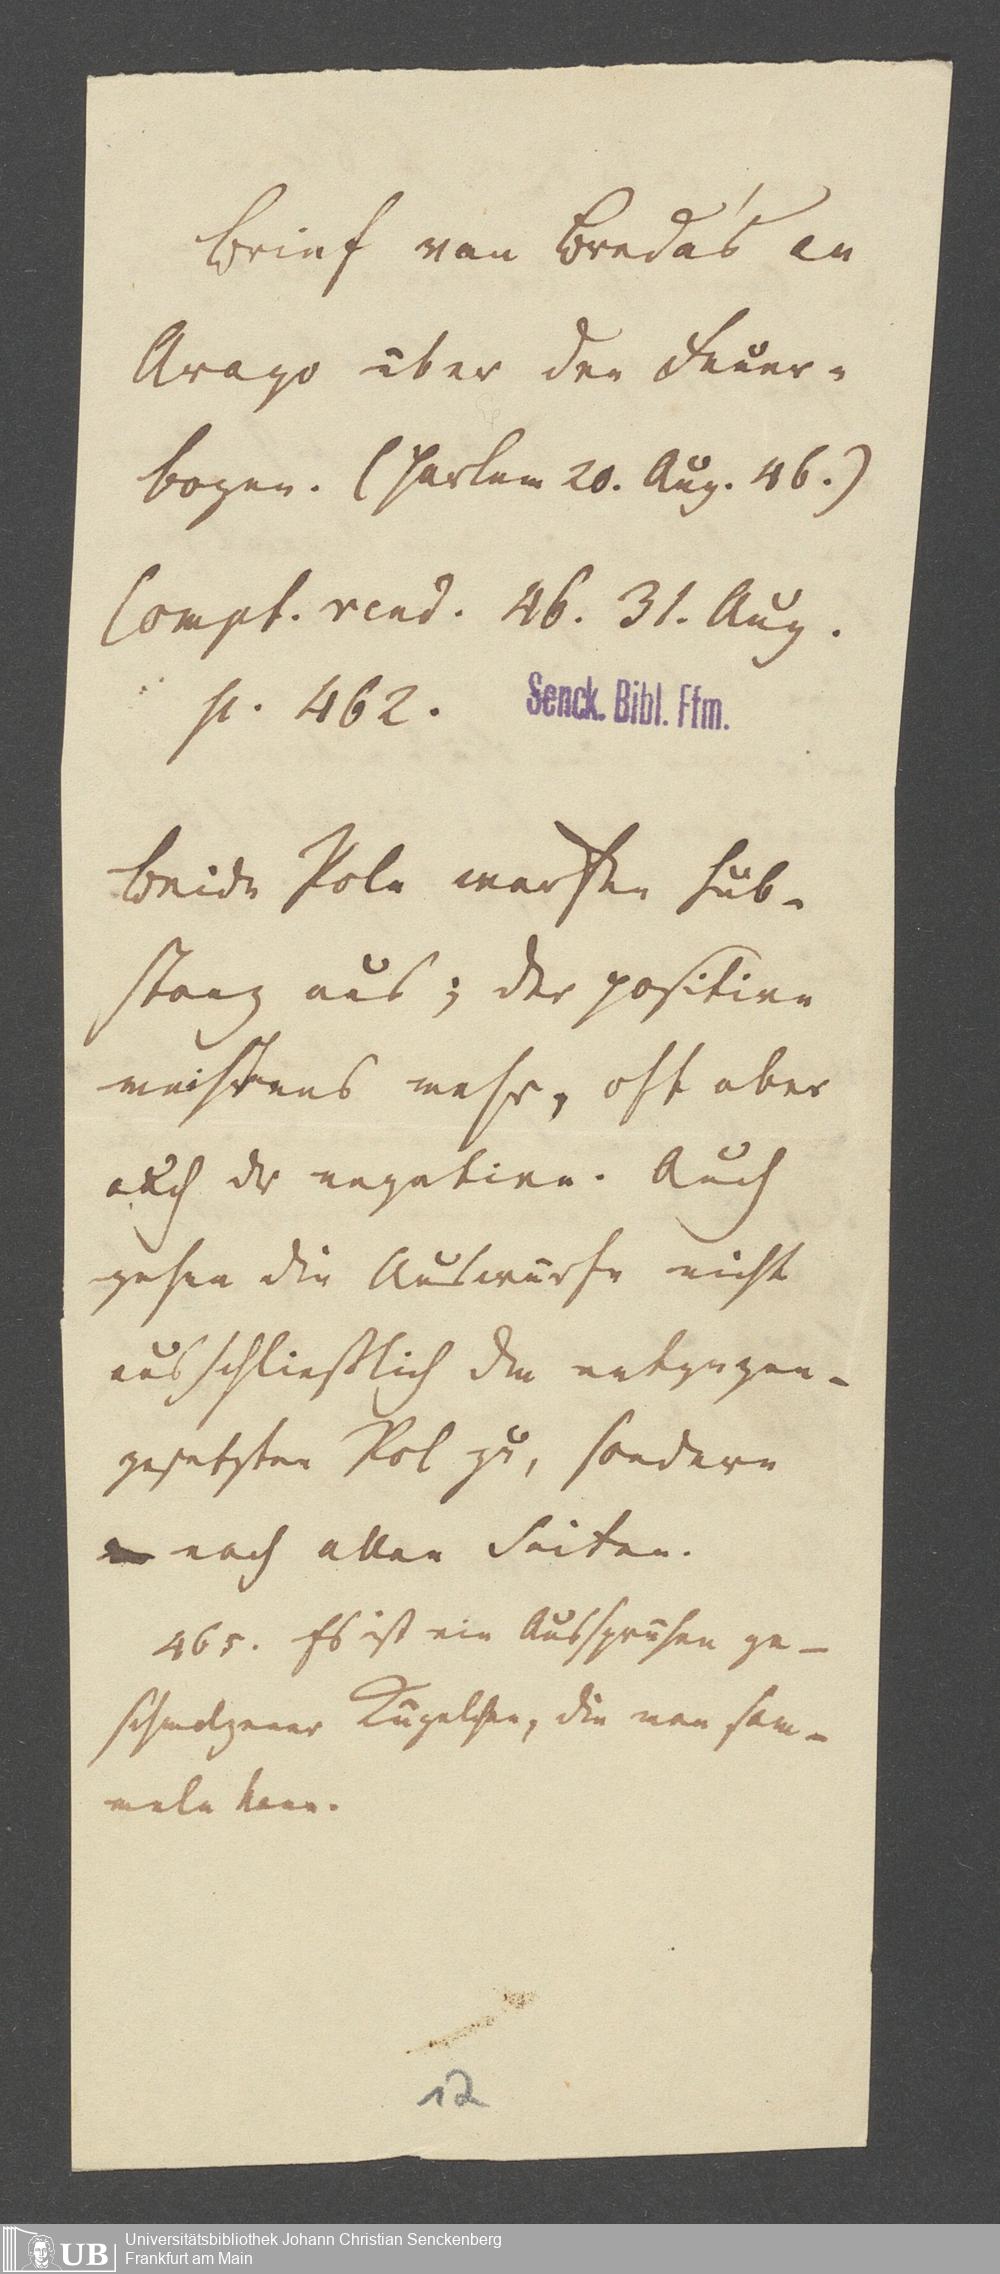 Brief van Breda's an
Arago über den Feuer-
bogen. (Harlem 20. Aug. 46.)
Compt. rend. 46. 31. Aug.
p. 462.
Senck. Bibl. Ffm.
Beide Pole werfen Sub-
stanz aus; der positive
meistens mehr, oft aber
auch der negative. Auch
gehen die Auswürfe nicht
ausschließlich dem entgegen-
gesetzten Pol zu, sondern
nach allen Seiten.
465. Es ist ein Aussprühen ge-
schmolzener Kügelchen, die man sam-
meln kann.
12
UB
Universitätsbibliothek Johann Christian Senckenberg
Frankfurt am Main